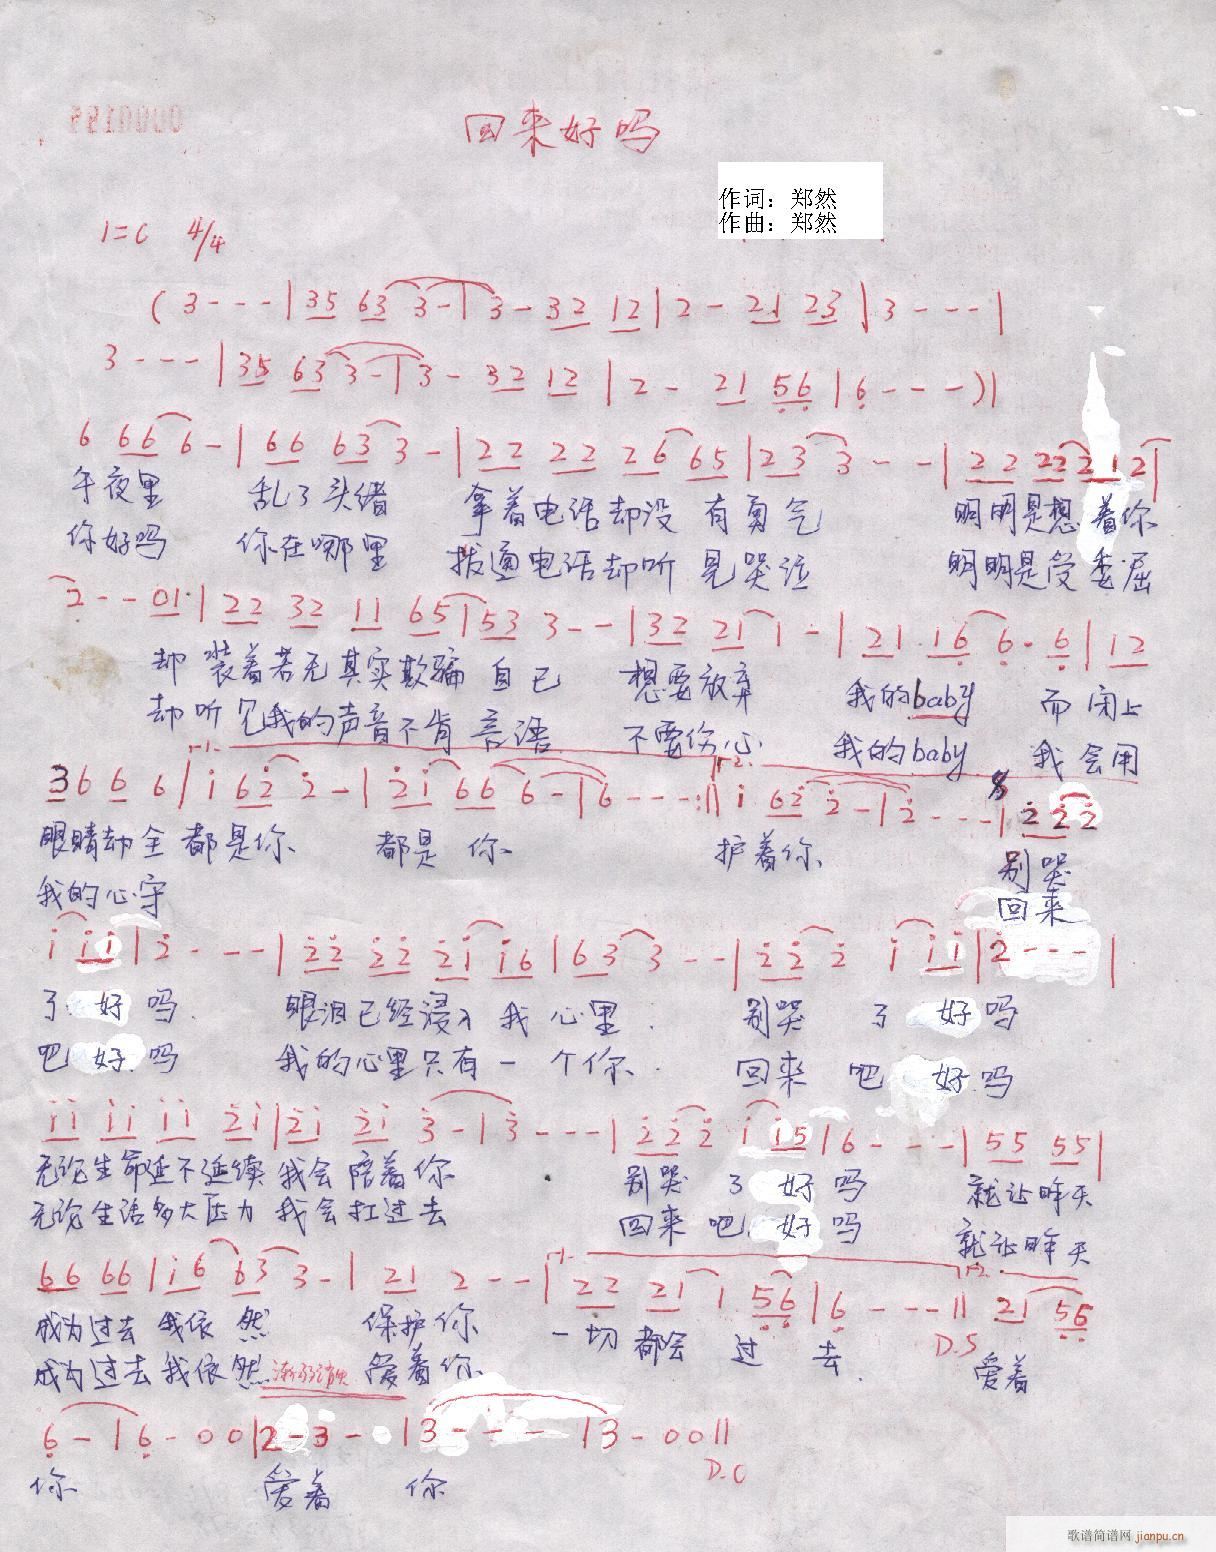 回来好吗
作词：郑然
作曲：郑然
1=C 4/4
( 3 - - - | 35 63 3 - | 3 - 32 12 | 2 - 21 23 | 3 - - - |
3 - - - | 35 63 3 - | 3 - 32 12 | 2 - 21 56 | 6 - - - ) |
6 66 6 - | 66 63 3 - | 22 22 26 65 | 23 3 - - | 22 22 21 2 |
午夜里 乱了头绪 拿着电话却没有勇气 明明是想着你
你好吗 你在哪里 拨通电话却听见哭泣 明明是受委屈
2 - - 01 | 22 32 11 65 | 53 3 - - | 32 21 1 - | 21 16 6 · 6 | 12
却装着若无其实欺骗自己 想要放弃 我的baby 而闭上
却听见我的声音不肯言语 不要伤心 我的baby 我会用
1. 2.
36 6 6 | i 62 2 - | 2i 66 6 - | 6 - - - :|| i 62 2 - | 2 - - - | 2 2 2
眼睛却全都是你 都是你 护着你 别哭
我的心守 回来
i i i | 2 - - - | 22 22 2i i6 | 63 3 - - | 22 2 i i i | 2 - - - |
了 好吗 眼泪已经浸入我心里 别哭了 好吗
吧 好吗 我的心里只有一个你 回来吧 好吗
ii ii ii 2i | 2i 2i 3 - | 3 - - - | 22 2 i i5 | 6 - - - | 55 55 |
无论生命延不延续我会陪着你 别哭了好吗 就让昨天
无论生活多大压力我会扛过去 回来吧好吗 就让昨天
1. 2.
66 66 | i6 63 3 - | 21 2 - - | 22 21 1 56 | 6 - - - || 21 56
成为过去我依然 保护你 一切都会过去 D.S 爱着
成为过去我依然 渐弱 爱着你
6 - | 6 - 0 0 | 2 - 3 - | 3 - - - | 3 - 0 0 || D.C
你 爱着 你
歌谱简谱网 jianpu.cn